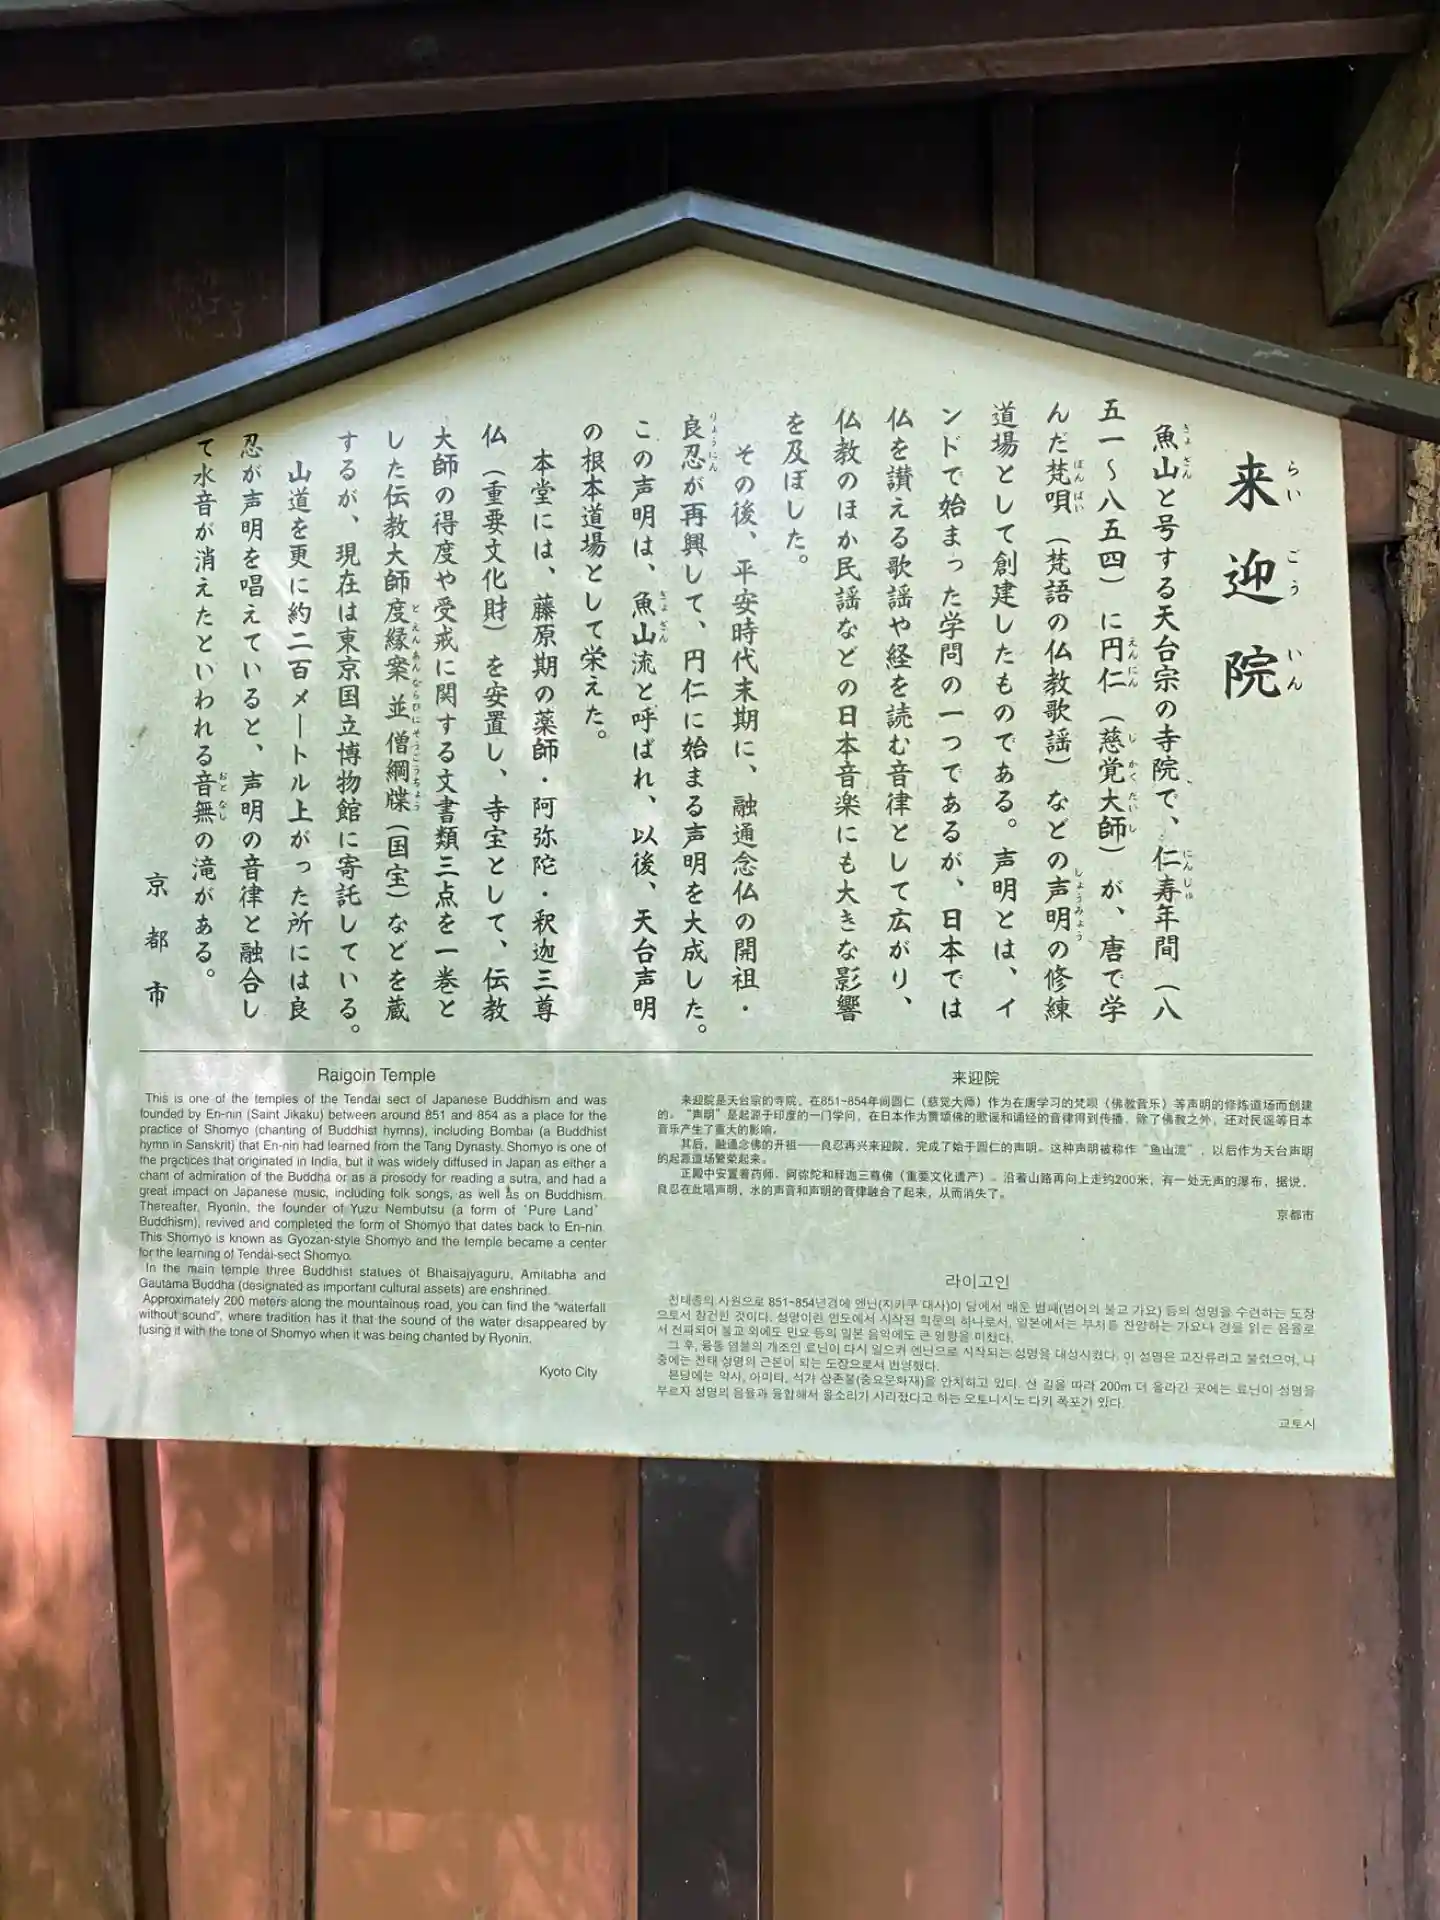 来迎院
らいごういん
魚山と号する天台宗の寺院で、仁寿年間（八
五一〜八五四）に円仁（慈覚大師）が、唐で学
んだ梵唄（梵語の仏教歌謡）などの声明の修練
道場として創建したものである。声明とは、イ
ンドで始まった学問の一つであるが、日本では
仏を讃える歌謡や経を読む音律として広がり、
仏教のほか民謡などの日本音楽にも大きな影響
を及ぼした。
その後、平安時代末期に、融通念仏の開祖・
良忍が再興して、円仁に始まる声明を大成した。
この声明は、魚山流と呼ばれ、以後、天台声明
の根本道場として栄えた。
本堂には、藤原期の薬師・阿弥陀・釈迦三尊
仏（重要文化財）を安置し、寺宝として、伝教
大師の得度や受戒に関する文書類三点を一巻と
した伝教大師度縁案並僧綱牒（国宝）などを蔵
するが、現在は東京国立博物館に寄託している。
山道を更に約二百メートル上がった所には良
忍が声明を唱えていると、声明の音律と融合し
て水音が消えたといわれる音無の滝がある。
京都市
Raigoin Temple
This is one of the temples of the Tendai sect of Japanese Buddhism and was
founded by En-nin (Saint Jikaku) between around 851 and 854 as a place for the
practice of Shomyo (chanting of Buddhist hymns), including Bombai (a Buddhist
hymn in Sanskrit) that En-nin had learned from the Tang Dynasty. Shomyo is one of
the practices that originated in India, but it was widely diffused in Japan as either a
chant of admiration of the Buddha or as a prosody for reading a sutra, and had a
great impact on Japanese music, including folk songs, as well as on Buddhism.
Thereafter, Ryonin, the founder of Yuzu Nembutsu (a form of 'Pure Land'
Buddhism), revived and completed the form of Shomyo that dates back to En-nin.
This Shomyo is known as Gyozan-style Shomyo and the temple became a center
for the learning of Tendai-sect Shomyo.
In the main temple three Buddhist statues of Bhaisajyaguru, Amitabha and
Gautama Buddha (designated as important cultural assets) are enshrined.
Approximately 200 meters along the mountainous road, you can find the "waterfall
without sound", where tradition has it that the sound of the water disappeared by
fusing it with the tone of Shomyo when it was being chanted by Ryonin.
Kyoto City
来迎院
来迎院是天台宗的寺院，在851-854年间圆仁（慈觉大师）作为在唐学习的梵呗（佛教音乐）等声明的修炼道场而创建
的。"声明"是起源于印度的一门学问，在日本作为赞颂佛的歌谣和诵经的音律得到传播，除了佛教之外，还对民谣等日本
音乐产生了重大的影响。
其后，融通念佛的开祖——良忍再兴来迎院，完成了始于圆仁的声明。这种声明被称作"鱼山流"，以后作为天台声明
的起源道场繁荣起来。
正殿中安置着药师、阿弥陀和释迦三尊佛（重要文化遗产）。沿着山路再向上走约200米，有一处无声的瀑布，据说，
良忍在此唱声明，水的声音和声明的音律融合了起来，从而消失了。
京都市
라이고인
천태종의 사원으로 851~854년경에 엔닌(지카쿠 대사)이 당에서 배운 범패(범어의 불교 가요) 등의 성명을 수련하는 도장
으로서 창건된 것이다. 성명이란 인도에서 시작된 학문의 하나로서, 일본에서는 부처를 찬양하는 가요나 경을 읽는 음율로
서 전파되어 불교 외에도 민요 등의 일본 음악에도 큰 영향을 미쳤다.
그 후, 융통 염불의 개조인 료닌이 다시 일으켜 엔닌으로 시작되는 성명을 대성시켰다. 이 성명은 교잔류라고 불렸으며, 나
중에는 천태 성명의 근본이 되는 도장으로서 번영했다.
본당에는 약사, 아미타, 석가 삼존불(중요문화재)을 안치하고 있다. 산 길을 따라 200m 더 올라간 곳에는 료닌이 성명을
부르자 성명의 음율과 융합해서 물소리가 사라졌다고 하는 오토나시노 다키 폭포가 있다.
교토시